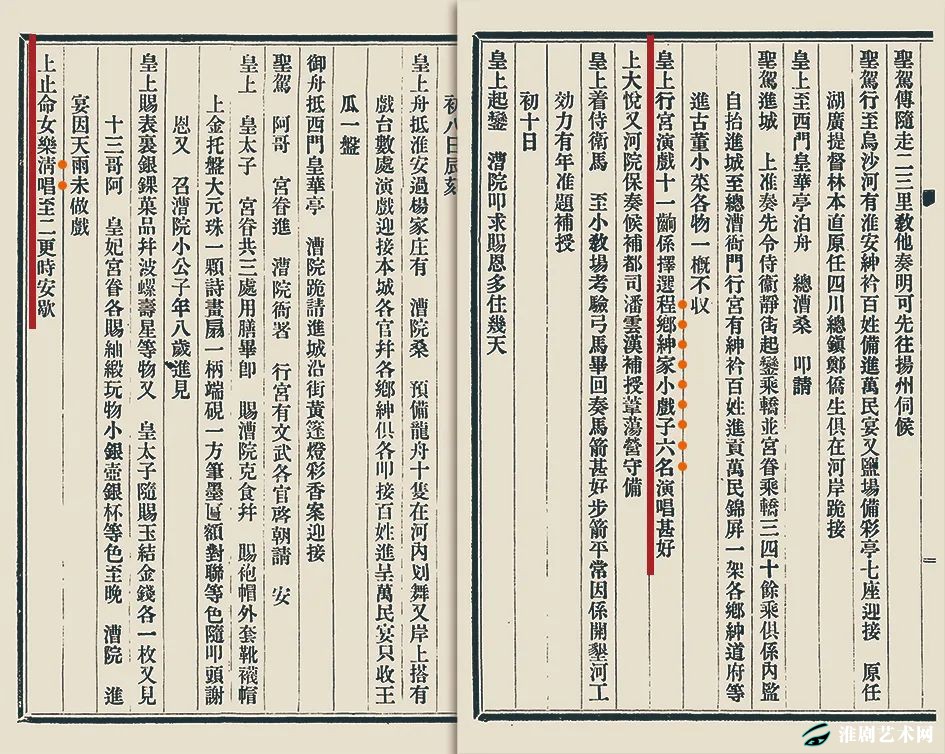 聖駕傳隨走二三里敎他奏明可先往揚州伺候
聖駕行至烏沙河有淮安紳衿百姓備進萬民宴又鹽場備彩亭七座迎接 原任
湖廣提督林本直原任四川總鎭鄭僑生俱在河岸跪接
皇上至西門皇華亭泊舟 總漕桑 叩請
聖駕進城 上准奏先令侍衛靜街起鑾乘轎並宮眷乘轎三四十餘乘俱係內監
自抬進城至總漕衙門行宮有紳衿百姓進貢萬民錦屏一架各鄉紳道府等
進古董小菜各物一槪不収
皇上行宮演戲十一齣係擇選程鄉紳家小戲子六名演唱甚好
上大悅又河院保奏候補都司潘雲漢補授葦蕩營守備
皇上着侍衛馬 至小敎場考驗弓馬畢回奏馬箭甚好步箭平常因係開墾河工
効力有年准題補授
初十日
皇上起鑾 漕院叩求賜恩多住幾天
初八日辰刻
皇上舟抵淮安過楊家庄有 漕院桑 預備龍舟十隻在河內划舞又岸上搭有
戲台數處演戲迎接本城各官幷各鄉紳俱各叩接百姓進呈萬民宴只收王
瓜一盤
御舟抵西門皇華亭 漕院跪請進城沿街黃篷燈彩香案迎接
聖駕 阿哥 宮眷進 漕院衙署 行宮有文武各官啓朝請 安
皇上 皇太子 宮眷共三處用膳畢即 賜漕院克食幷 賜袍帽外套靴襪帽
上金托盤大元珠一顆詩畫扇一柄端硯一方筆墨匾額對聯等色隨叩頭謝
恩又 召漕院小公子年八歲進見
皇上賜表裏銀錁菓品幷波螺壽星等物又 皇太子隨賜玉結金錢各一枚又見
十三哥阿 皇妃宮眷各賜紬緞玩物小銀壺銀杯等色至晚 漕院 進
宴因天雨未做戲
上止命女樂淸唱至二更時安歇
淮剧艺术网